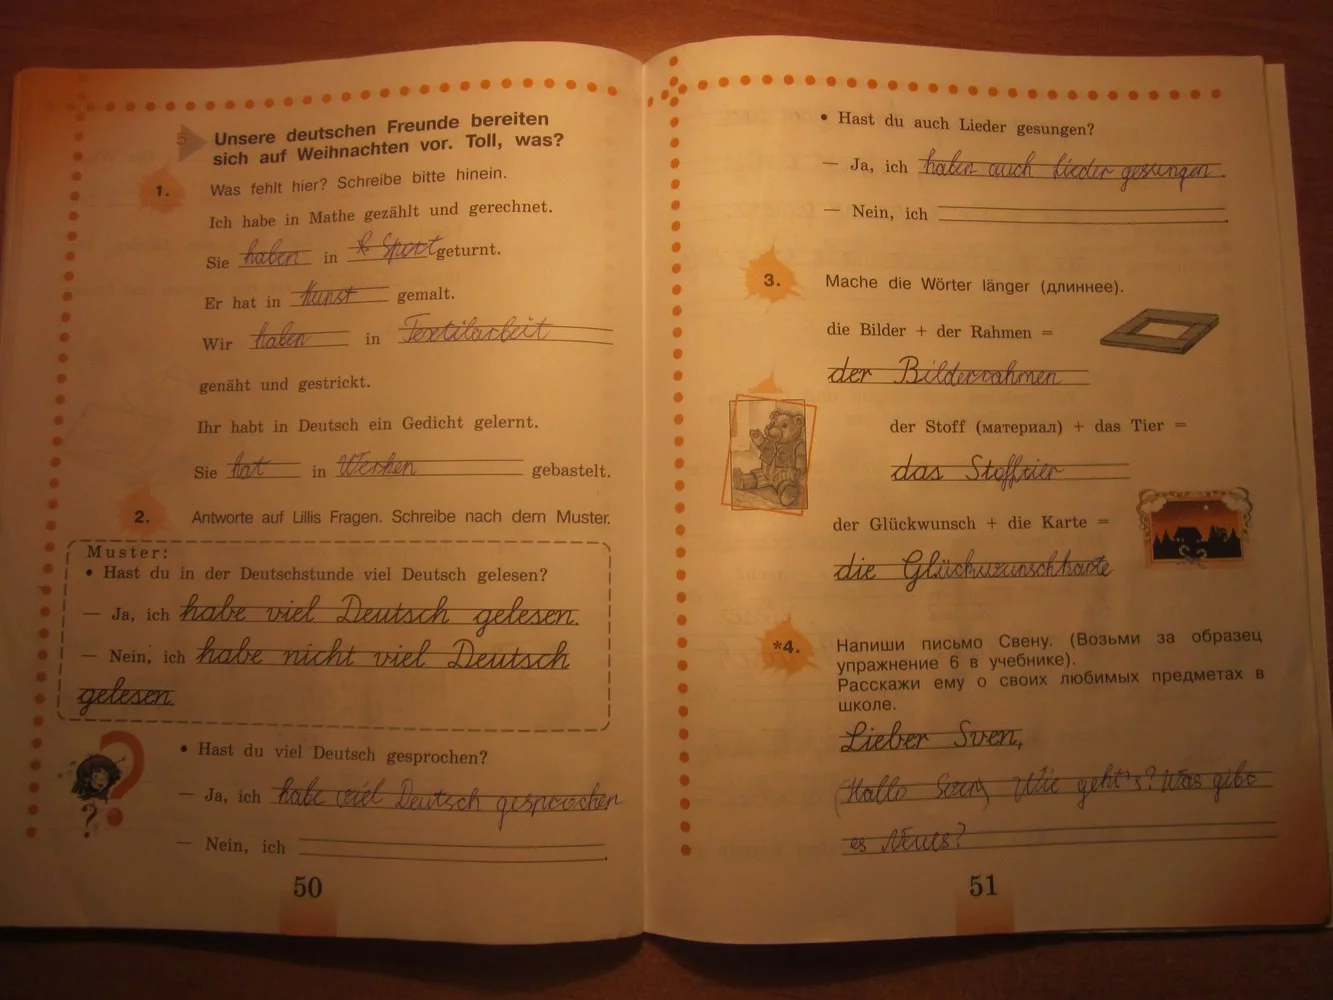 Unsere deutschen Freunde bereiten
sich auf Weihnachten vor. Toll, was?
1. Was fehlt hier? Schreibe bitte hinein.
Ich habe in Mathe gezählt und gerechnet.
Sie haben in Sport geturnt.
Er hat in Kunst gemalt.
Wir haben in Textilarbeit
genäht und gestrickt.
Ihr habt in Deutsch ein Gedicht gelernt.
Sie hat in Werken gebastelt.
2. Antworte auf Lillis Fragen. Schreibe nach dem Muster.
Muster:
• Hast du in der Deutschstunde viel Deutsch gelesen?
— Ja, ich habe viel Deutsch gelesen.
— Nein, ich habe nicht viel Deutsch
gelesen.
• Hast du viel Deutsch gesprochen?
— Ja, ich habe viel Deutsch gesprochen
— Nein, ich
50
• Hast du auch Lieder gesungen?
— Ja, ich haben auch Lieder gesungen.
— Nein, ich
3. Mache die Wörter länger (длиннее).
die Bilder + der Rahmen =
der Bilderrahmen
der Stoff (материал) + das Tier =
das Stofftier
der Glückwunsch + die Karte =
die Glückwunschkarte
*4. Напиши письмо Свену. (Возьми за образец
упражнение 6 в учебнике).
Расскажи ему о своих любимых предметах в
школе.
Lieber Sven,
(Hallo Sven) Wie geht's? Was gibt
es Neues?
51